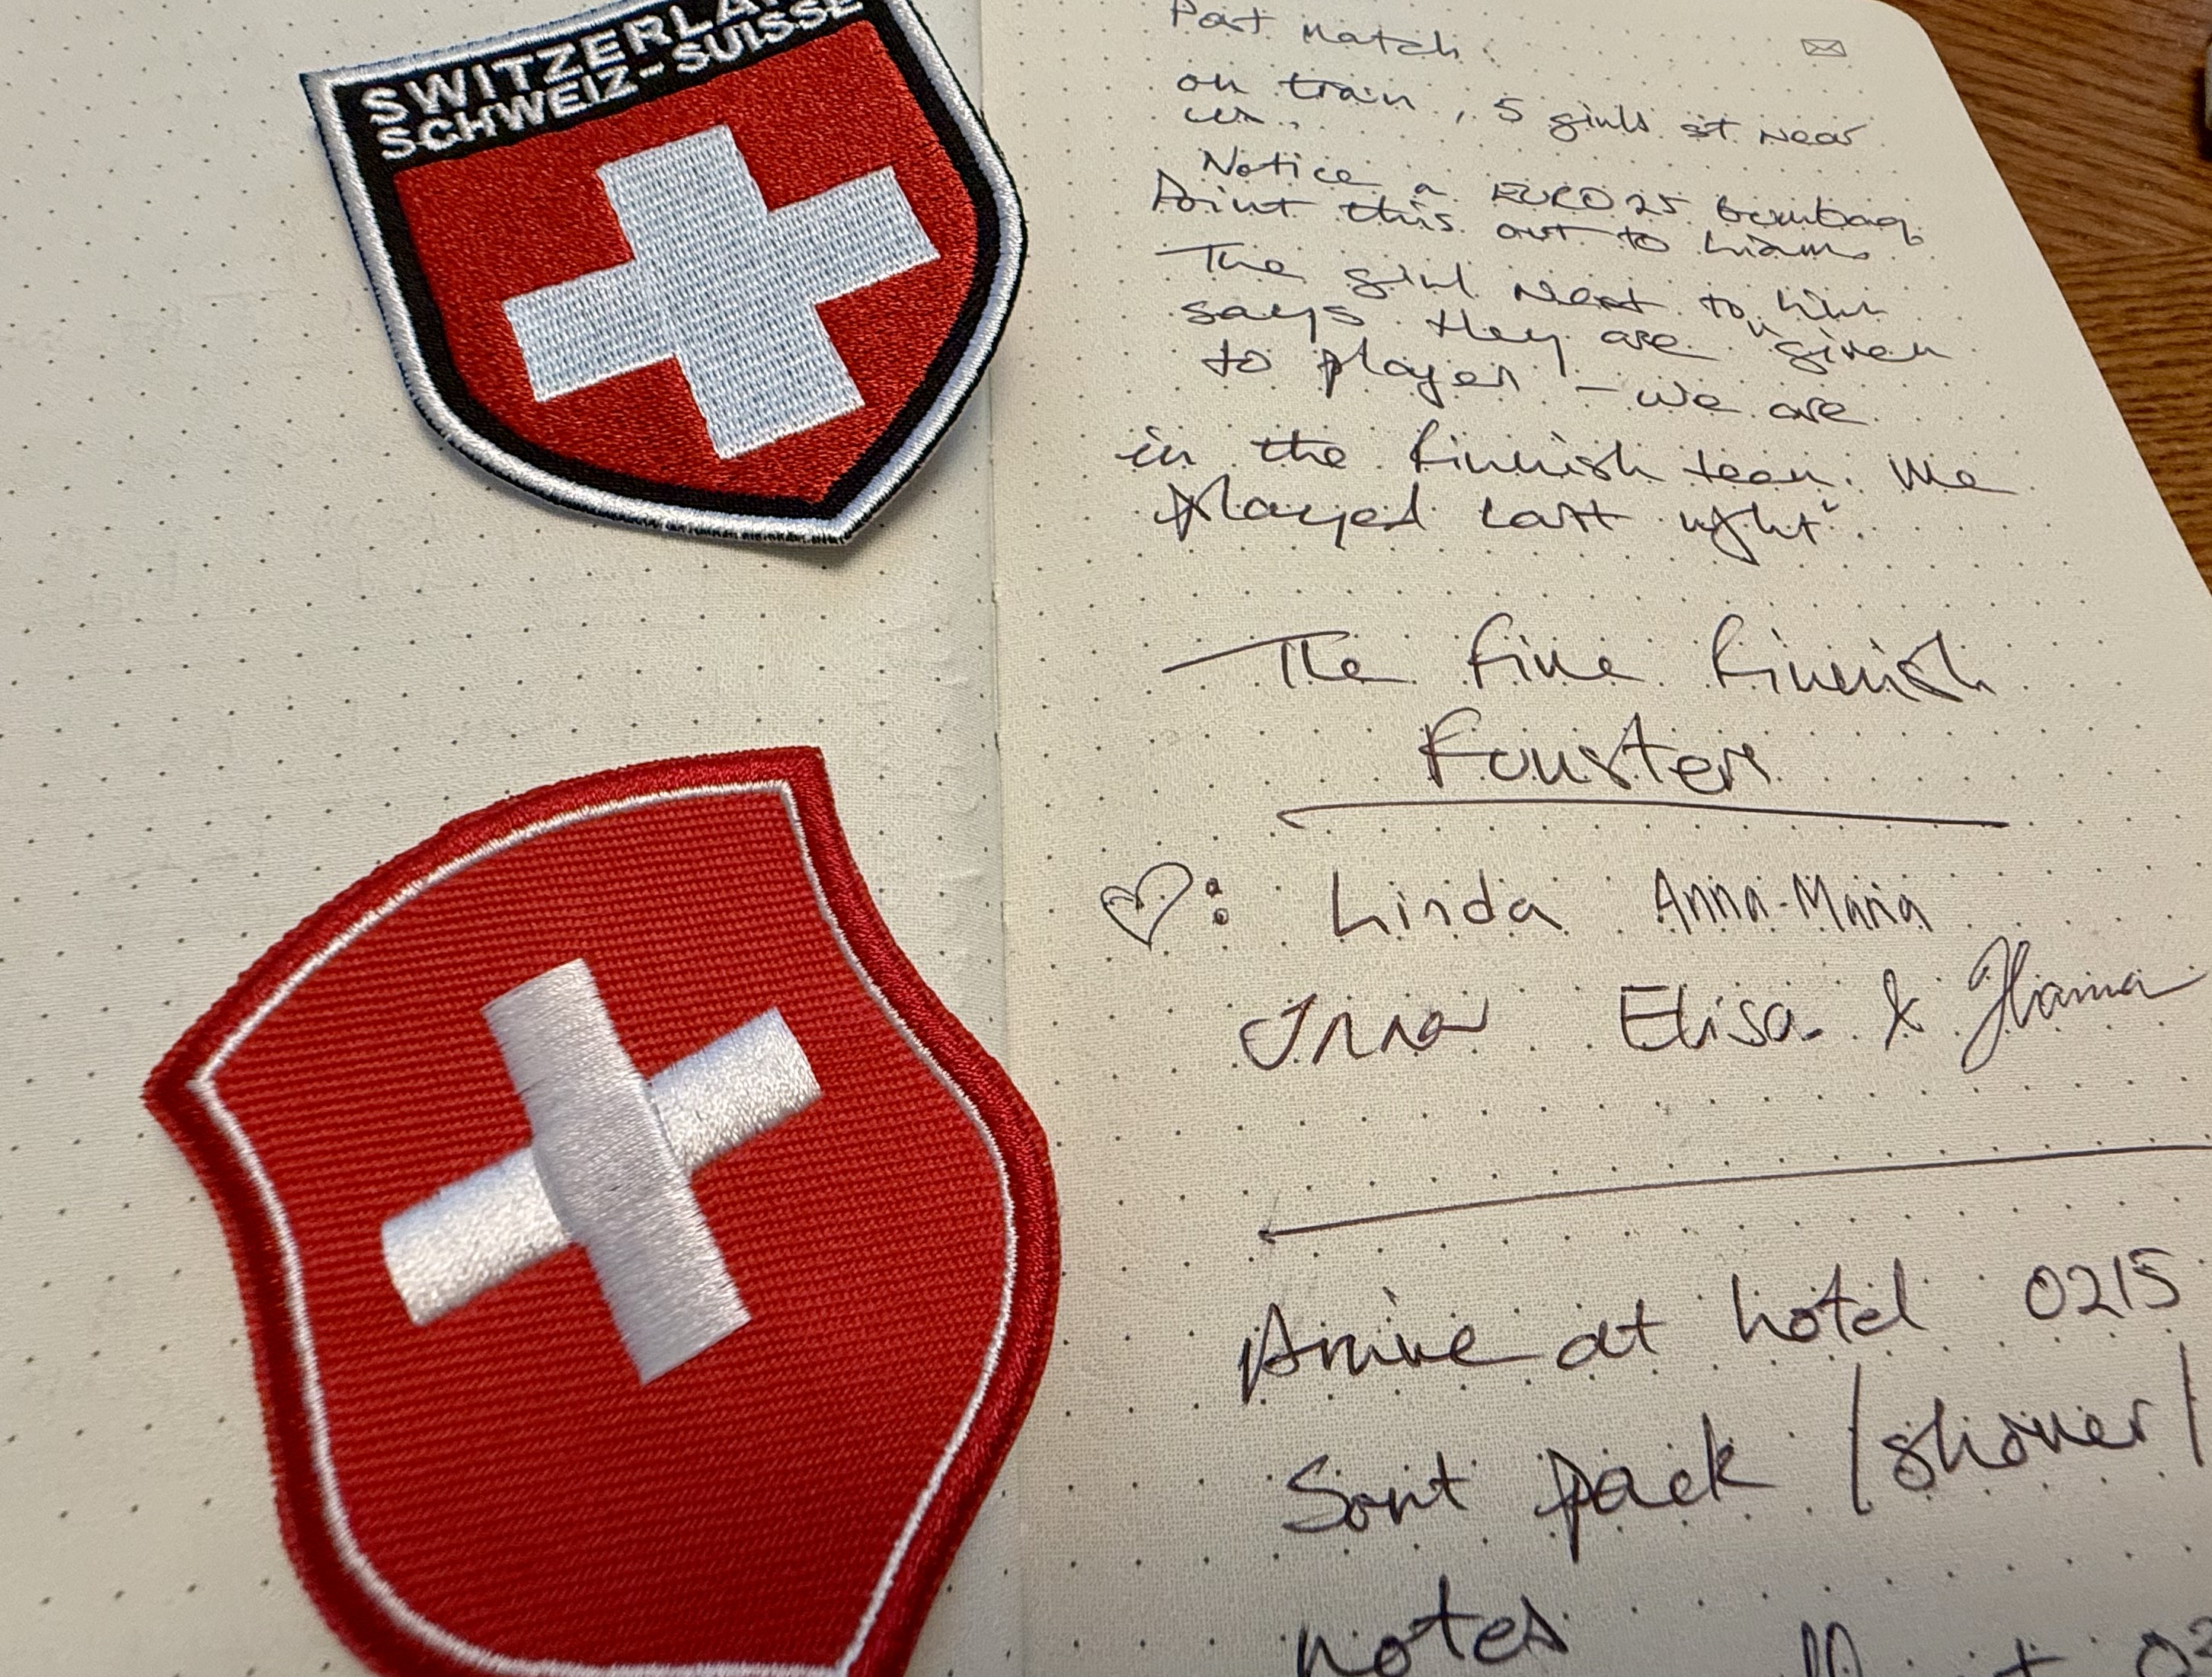 SWITZERLA
SCHWEIZ-SUISSE
Post Match.
on train, 5 girls sit near
us.
Notice a EURO 25 bumbag.
Point this out to Liam.
The girl next to him
says they are "given
to players - we are
in the Finnish team. We
played last night".
The Fine Finnish
Footsters
♡: Linda Anna-Maria
Jenna Elisa & Hanna
Arrive at hotel 0215
Sort pack / shower /
notes